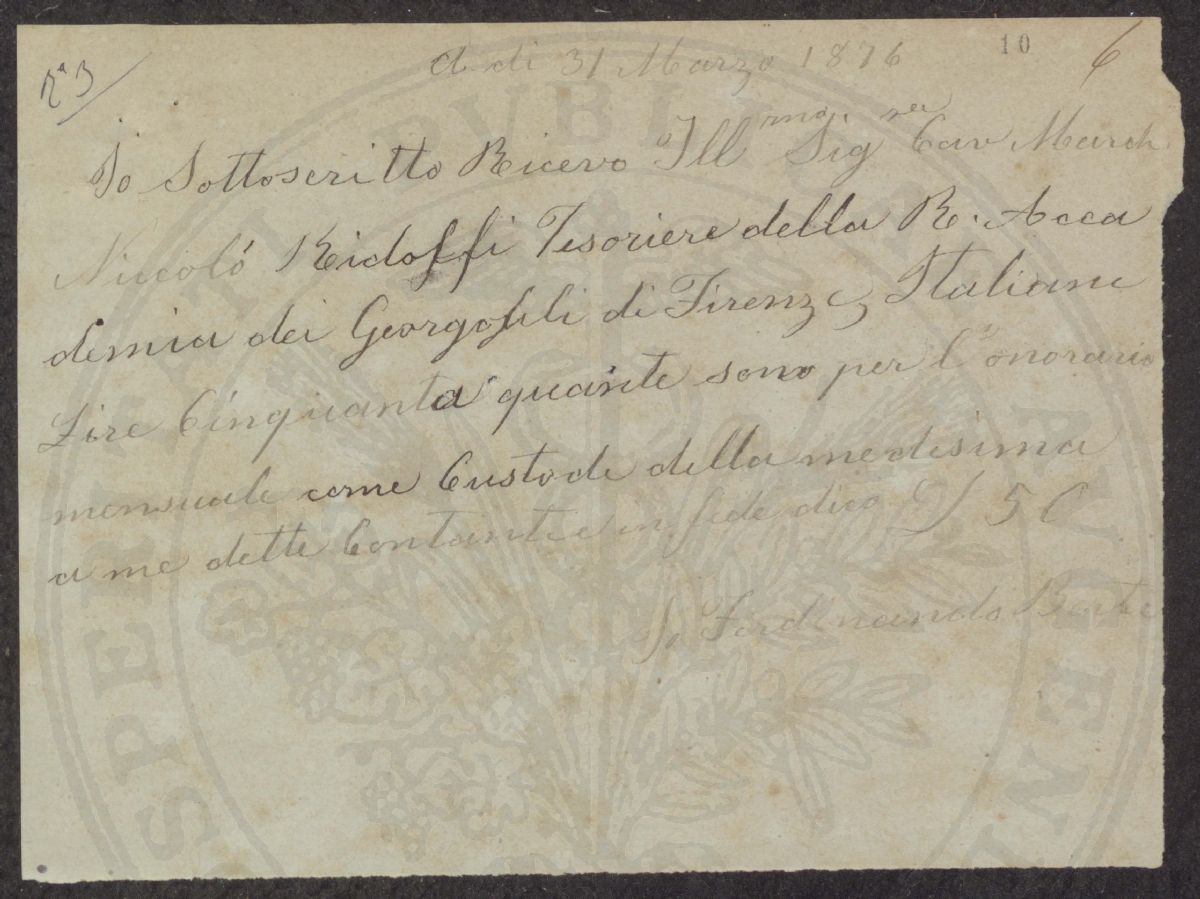 A di 31 Marzo 1876
10
6
Io Sottoscritto Ricevo Ill^mo Sig^re Cav March
Niccoló Ridolffi Tesoriere della R. Acca
demia dei Georgofili di Firenze Italiane
Lire Cinquanta quante sono per l'onorario
mensuale come Custode della medesima
a me dette Contante in fede dico £ 50
Io Ferdinando
PVBLICAE
PROSPERITATI AVGENDAE